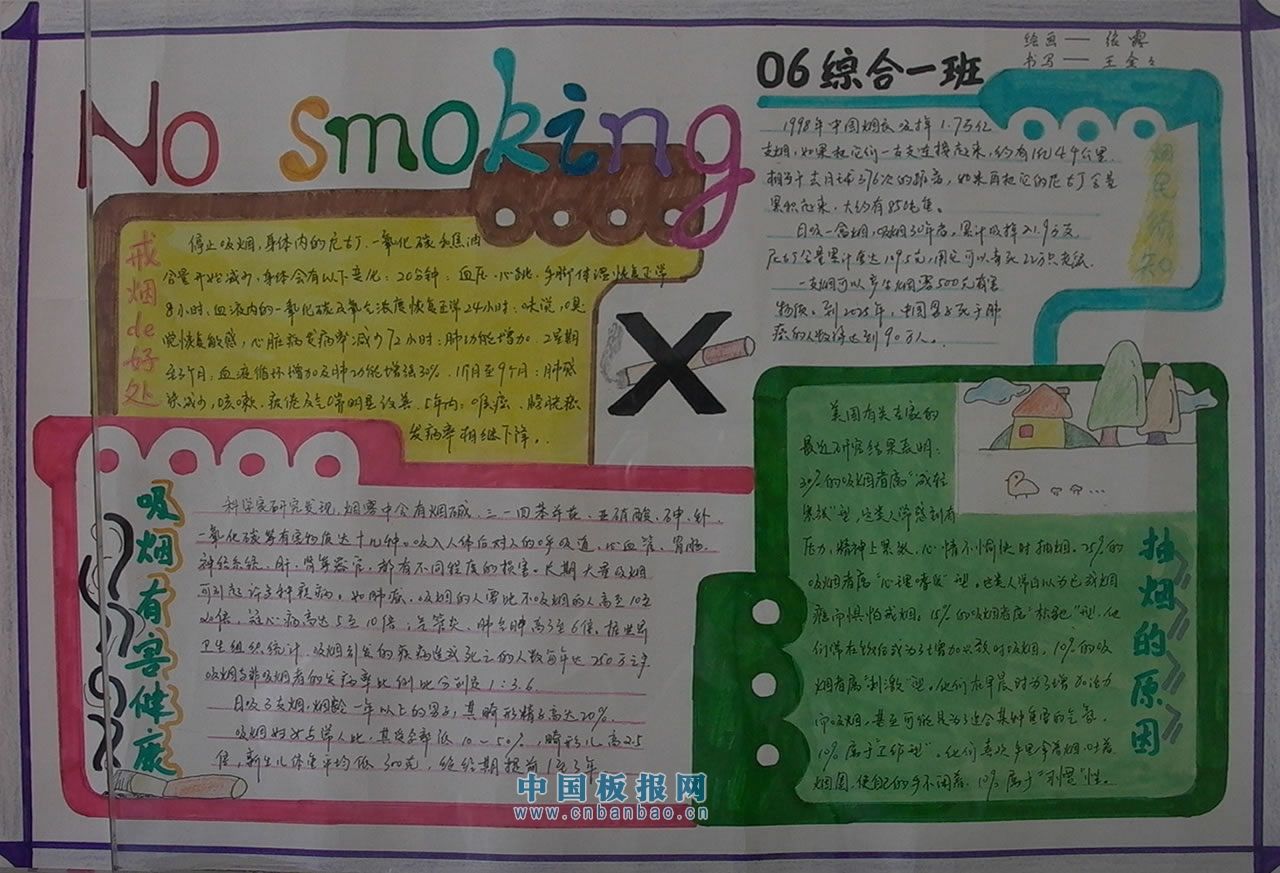 No smoking
06综合一班
绘画——张露
书写——王金
戒烟de好处
停止吸烟,身体内的尼古丁、一氧化碳和焦油
含量开始减少,身体会有以下变化:20分钟:血压、心跳、手脚体温恢复正常
8小时:血液内的一氧化碳及氧气浓度恢复正常24小时:味觉、嗅
觉恢复敏感,心脏病发病率减少72小时:肺功能增加.2星期
至3个月:血液循环增加及肺功能增强30%.1个月至9个月:肺感
染减少,咳嗽、疲倦及气喘明显改善.5年内:喉癌、膀胱癌
发病率相继下降。
烟民须知
1998年中国烟民吸掉1.7万亿
支烟,如果把它们一支支连接起来,约有1亿4千公里,
相当于去月球376次的距离,如果再把它的尼古丁含量
累积起来,大约有850吨重。
日吸一盒烟,吸烟30年者,累计吸掉21.9万支
一支烟可以产生烟雾500尤有害
物质。到2025年,中国男子死于肺
癌的人数将达到90万人。
吸烟有害健康
科学家研究发现,烟雾中含有烟碱、三—四苯并芘、亚硝酸、砷、针、
一氧化碳等有害物质达十几种。吸入人体后对人的呼吸道、心血管、胃肠、
神经系统、肝、肾等器官,都有不同程度的损害。长期大量吸烟
可引起许多种疾病。如肺癌,吸烟的人要比不吸烟的人高至10至
20倍,冠心病高达5至10倍,气管炎、肺气肿高3至6倍。据世界
卫生组织统计,吸烟引发的疾病造成死亡的人数每年达250万之多
吸烟与非吸烟者的发病率比例比分别是1:3.6.
日吸3支烟,烟龄一年以上的男子,其畸形精子高达20%.
吸烟妇女与常人比,其受孕率低10~50%,畸形儿高2.5
倍,新生儿体重平均低300克,绝经期提前1至3年.
抽烟的原因
美国有关专家的
最近研究结果表明:
30%的吸烟者属“减轻
紧张”型,这类人常感到有
压力,精神上紧张,心情不愉快时抽烟。25%的
吸烟者属“心理嗜好”型。这类人常自以为已成烟
瘾而惧怕戒烟。15%的吸烟者属“松弛”型,他
们常在饭后或为了增加兴致时吸烟,10%的吸
烟者属“刺激”型。他们在早晨时为了增加活力
而吸烟,甚至可能只为了迎合某种角色的气氛。
10%属于“工作型”。他们喜欢手里拿着烟,吐着
烟圈,使自己的手不闲着,10%属于“习惯”性。
中国板报网
www.cnbanbao.cn